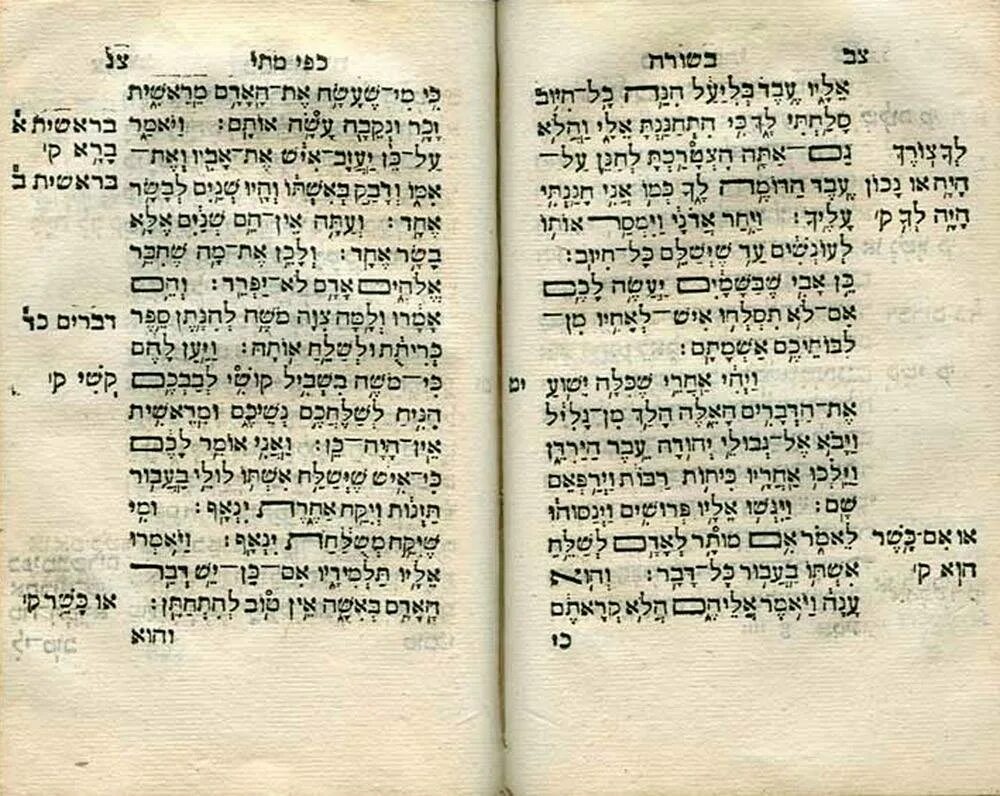 צב בשורה
אליו עבד בליעל הנה כל־חיוב
סלחתי לך כי התחננת אלי והלא
גם־אתה הצטרכת לחנן על־
לך צורך
עבד הדומה לך כמו אני חננתי
היה או נכון
עליך: ויחר אדני וימסר אותו
היה לך ק׳
לעונשים עד שישלם כל־חיוב:
כן אבי שבשמים יעשה לכם
אם־לא תסלחו איש־לאחיו מן־
לבותיכם אשמתם:
ויהי אחרי שכלה ישוע
יט
את־הדברים האלה הלך מן־גליל
ויבא אל־גבולי יהודה עבר הירדן
וילכו אחריו כיתות רבות וירפאם
שם: ויגשו אליו פרושים וינסוהו
לאמר אם מותר לאדם לשלח
או אם־כשר
אשתו בעבור כל־דבר: והוא
הוא ק׳
ענה ויאמר אליהם הלא קראתם
כי
כפי מתי צג
כי מי־שעשה את־האדם מראשית
זכר ונקבה עשה אותם: ויאמר
בראשית א
על־כן יעזוב־איש את־אביו ואת־
ברא ק׳
אמו ודבק באשתו והיו שנים לבשר
בראשית ב
אחד: ועתה אין־הם שנים אלא
בשר אחד: ולכן את־מה שחבר
אלהים אדם לא־יפריד: והם
אמרו ולמה צוה משה להנתן ספר
דברים כד
כריתת ולשלח אותה: ויען להם
כי־משה בשביל קושי לבבכם
קשי ק׳
הניח לשלחכם נשיכם ומראשית
אין־היה־כן: ואני אומר לכם
כי־איש שישלח אשתו לולי בעבור
הזנות ויקח אחרת ינאף: ומי
שיקח משלחת ינאף: ויאמרו
אליו תלמידיו אם־כן־יש דבר
האדם באשה אין טוב להתחתן:
או כשר ק׳
והוא